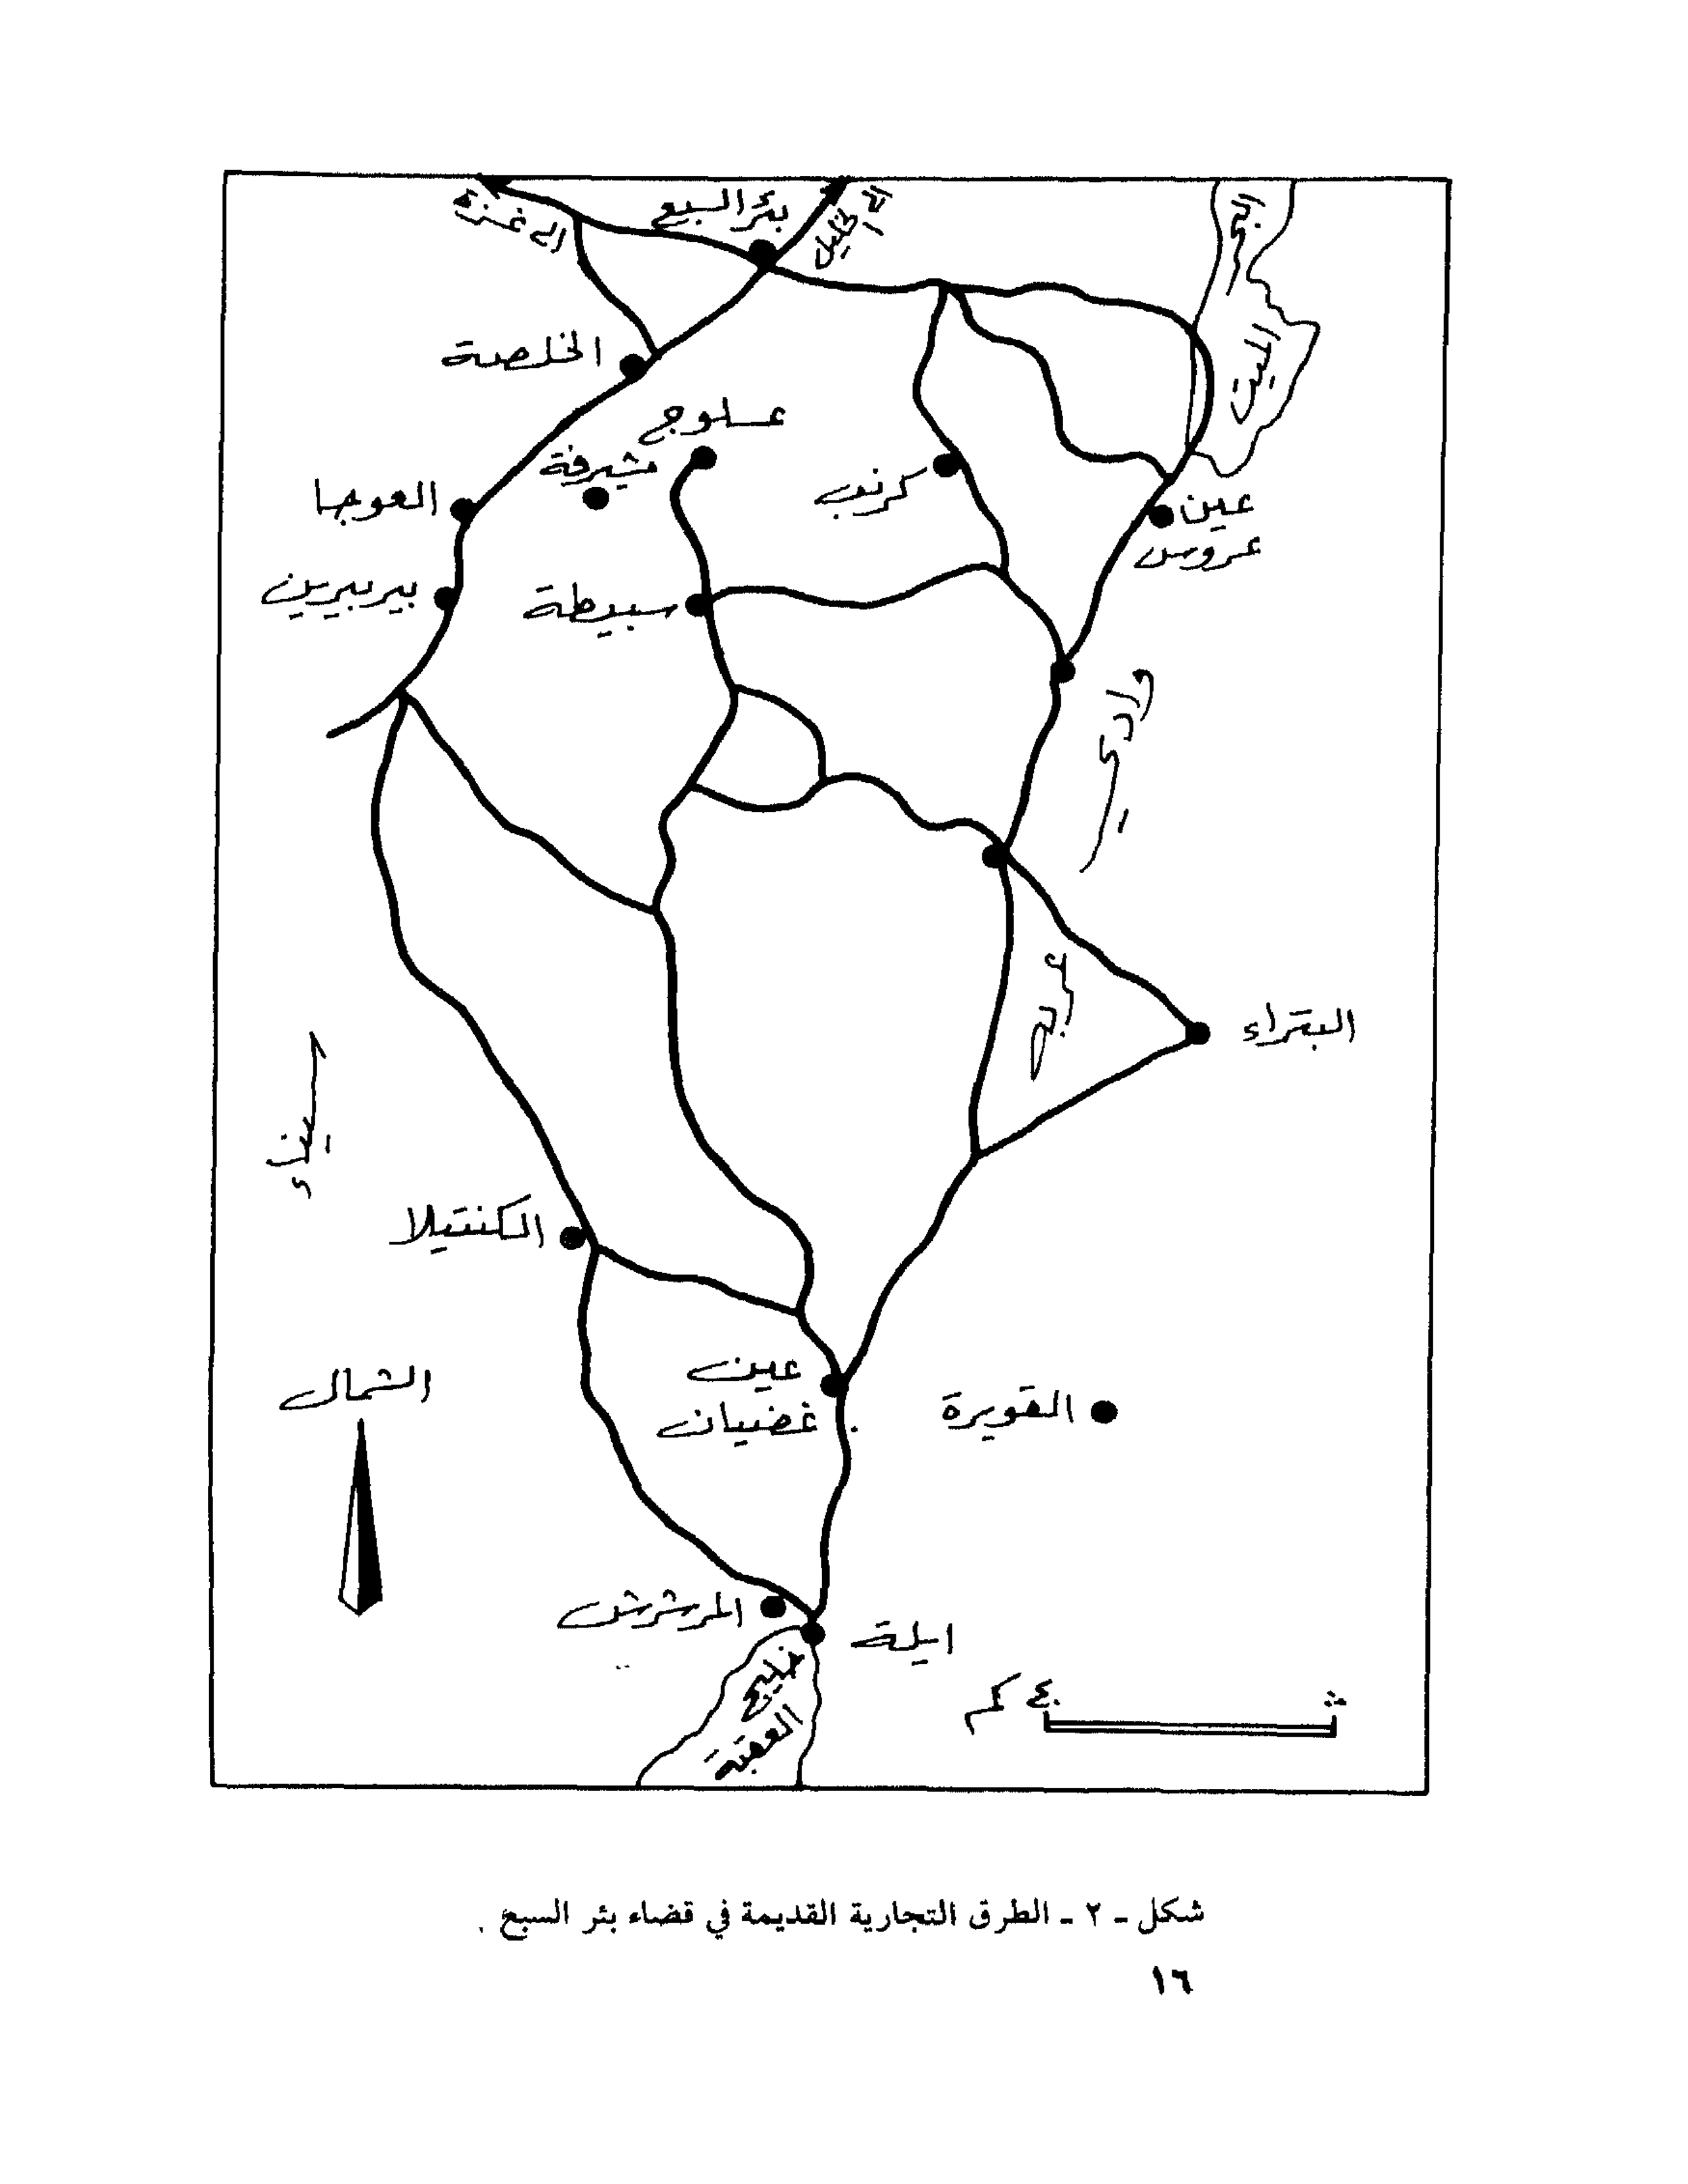 الى غزة
بئر السبع
الى الخليل
البحر
الميت
الخلصة
عسلوج
مشيرفة
كرنب
العوجا
عين
عروس
بيربيرين
سبيطة
وادي
عربه
البتراء
سيناء
الكنتيلا
الشمال
عين
غضيان
القويرة
المرشرش
ايلة
خليج
العقبة
٤٠ كم
شكل - ٢ - الطرق التجارية القديمة في قضاء بئر السبع .
١٦